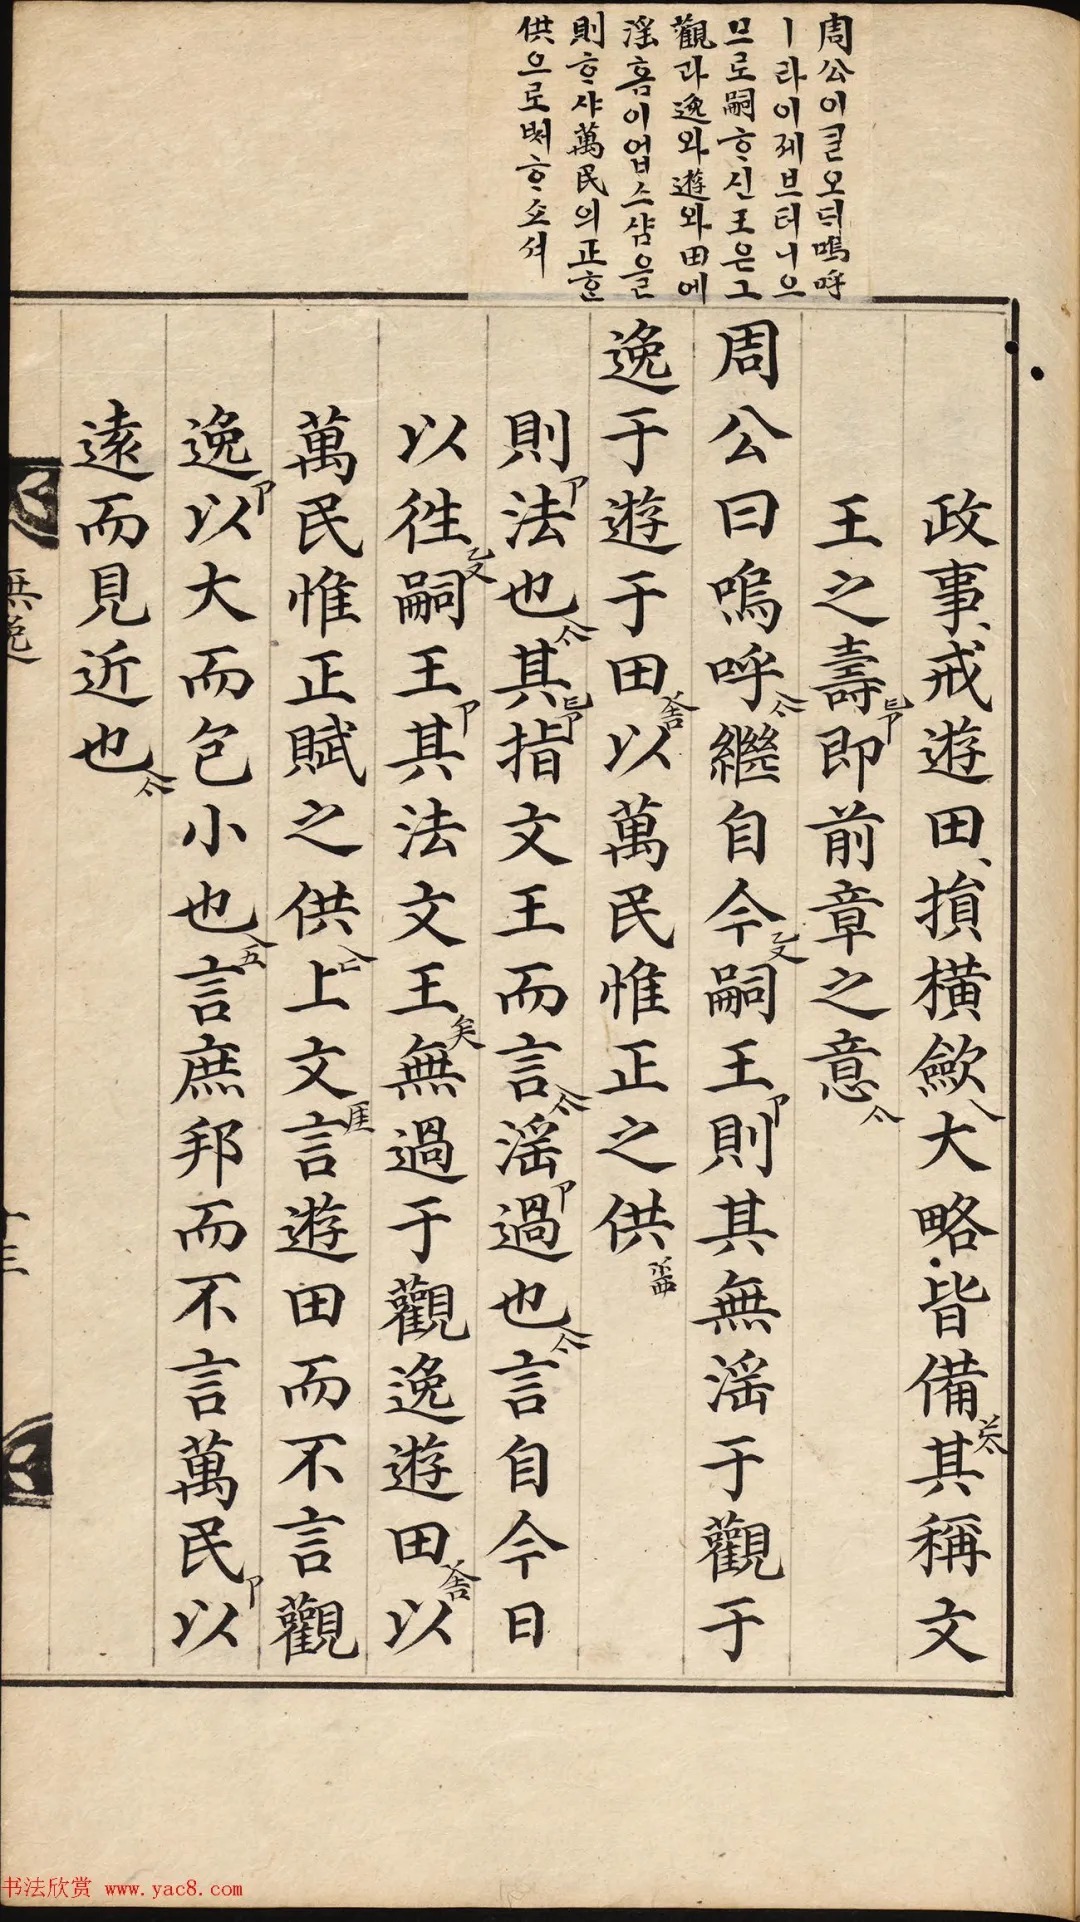 周公이ᄀᆞᆯ오ᄃᆡ嗚呼
ㅣ라이제브터니으
므로嗣ᄒᆞ신王은그
觀과逸와遊와田에
淫홈이업스샴을
則ᄒᆞ샤萬民의正ᄒᆞᆫ
供으로ᄡᅥᄒᆞ쇼셔
政事戒遊田損橫歛大略皆備其稱文
王之壽即前章之意
周公曰嗚呼繼自今嗣王則其無淫于觀于
逸于遊于田以萬民惟正之供
則法也其指文王而言淫過也言自今日
以徃嗣王其法文王無過于觀逸遊田以
萬民惟正賦之供上文言遊田而不言觀
逸以大而包小也言庶邦而不言萬民以
遠而見近也
無逸
十三
书法欣赏 www.yac8.com